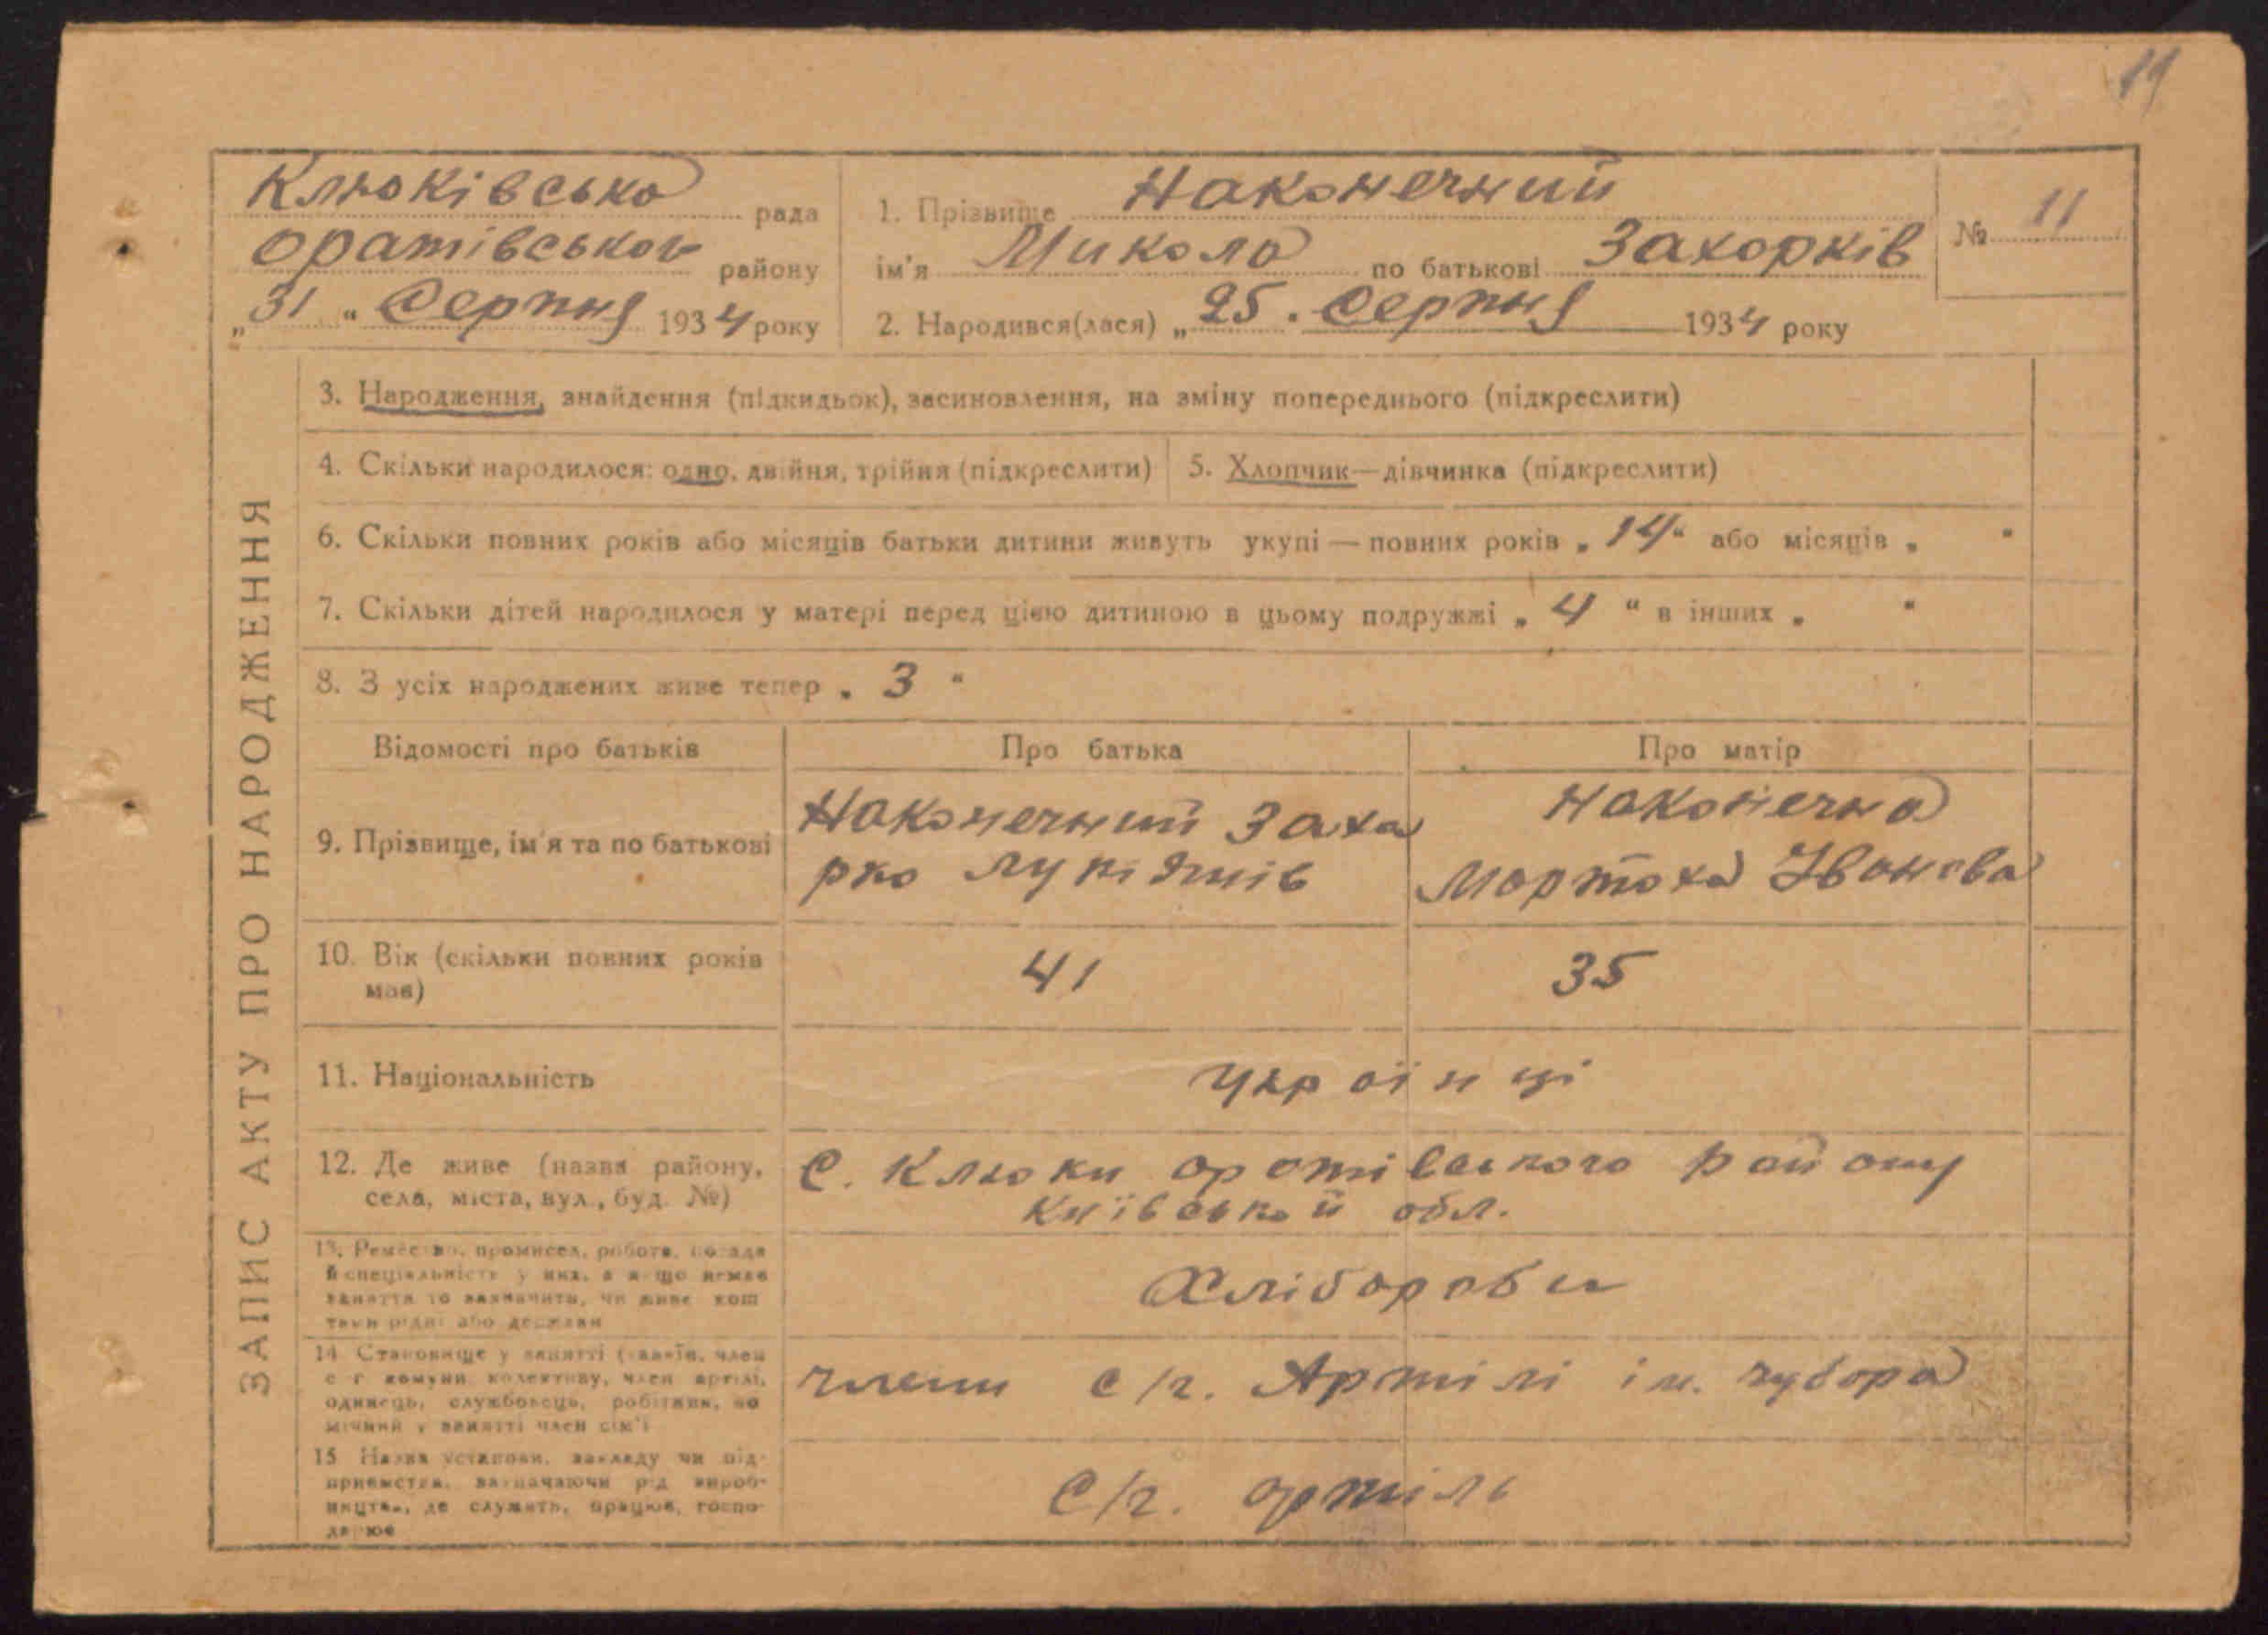 11
Клюківська рада
Оратівського району
„31“ Серпня 1934 року
1. Прізвище Наконечний
ім'я Микола по батькові Захорків
2. Народився(лася) „25. Серпня 1934 року
№ 11
ЗАПИС АКТУ ПРО НАРОДЖЕННЯ
3. Народження, знайдення (підкидьок), засиновлення, на зміну попереднього (підкреслити)
4. Скільки народилося: одно, двійня, трійня (підкреслити)
5. Хлопчик—дівчинка (підкреслити)
6. Скільки повних років або місяців батьки дитини живуть укупі — повних років „14“ або місяців „ “
7. Скільки дітей народилося у матері перед цією дитиною в цьому подружжі „4“ в інших „ “
8. З усіх народжених живе тепер „3“
Відомості про батьків Про батька Про матір
9. Прізвище, ім'я та по батькові
Наконечний Заха
рко Лупіянів
Наконечна
Мортоха Іванова
10. Вік (скільки повних років
має)
41 35
11. Національність
Українці
12. Де живе (назва району,
села, міста, вул., буд. №)
С. Клюки Оротівського району
Київській обл.
13. Ремество, промисел, робота, посада
й спеціальність у них, а якщо немає
заняття то зазначить, чи живе кош
тами рідні або держави
Хлібороби
14. Становище у занятті (хазяїн, член
с г комуни колективу, член артілі,
одинець, службовець, робітник, по
мічний у занятті член сім'ї
члени с/г. Артілі ім. Чубора
15 Назва установи, закладу чи під-
приємства, зазначаючи рід вироб-
ництва, де служить, працює, госпо-
дарює
С/г. артіль